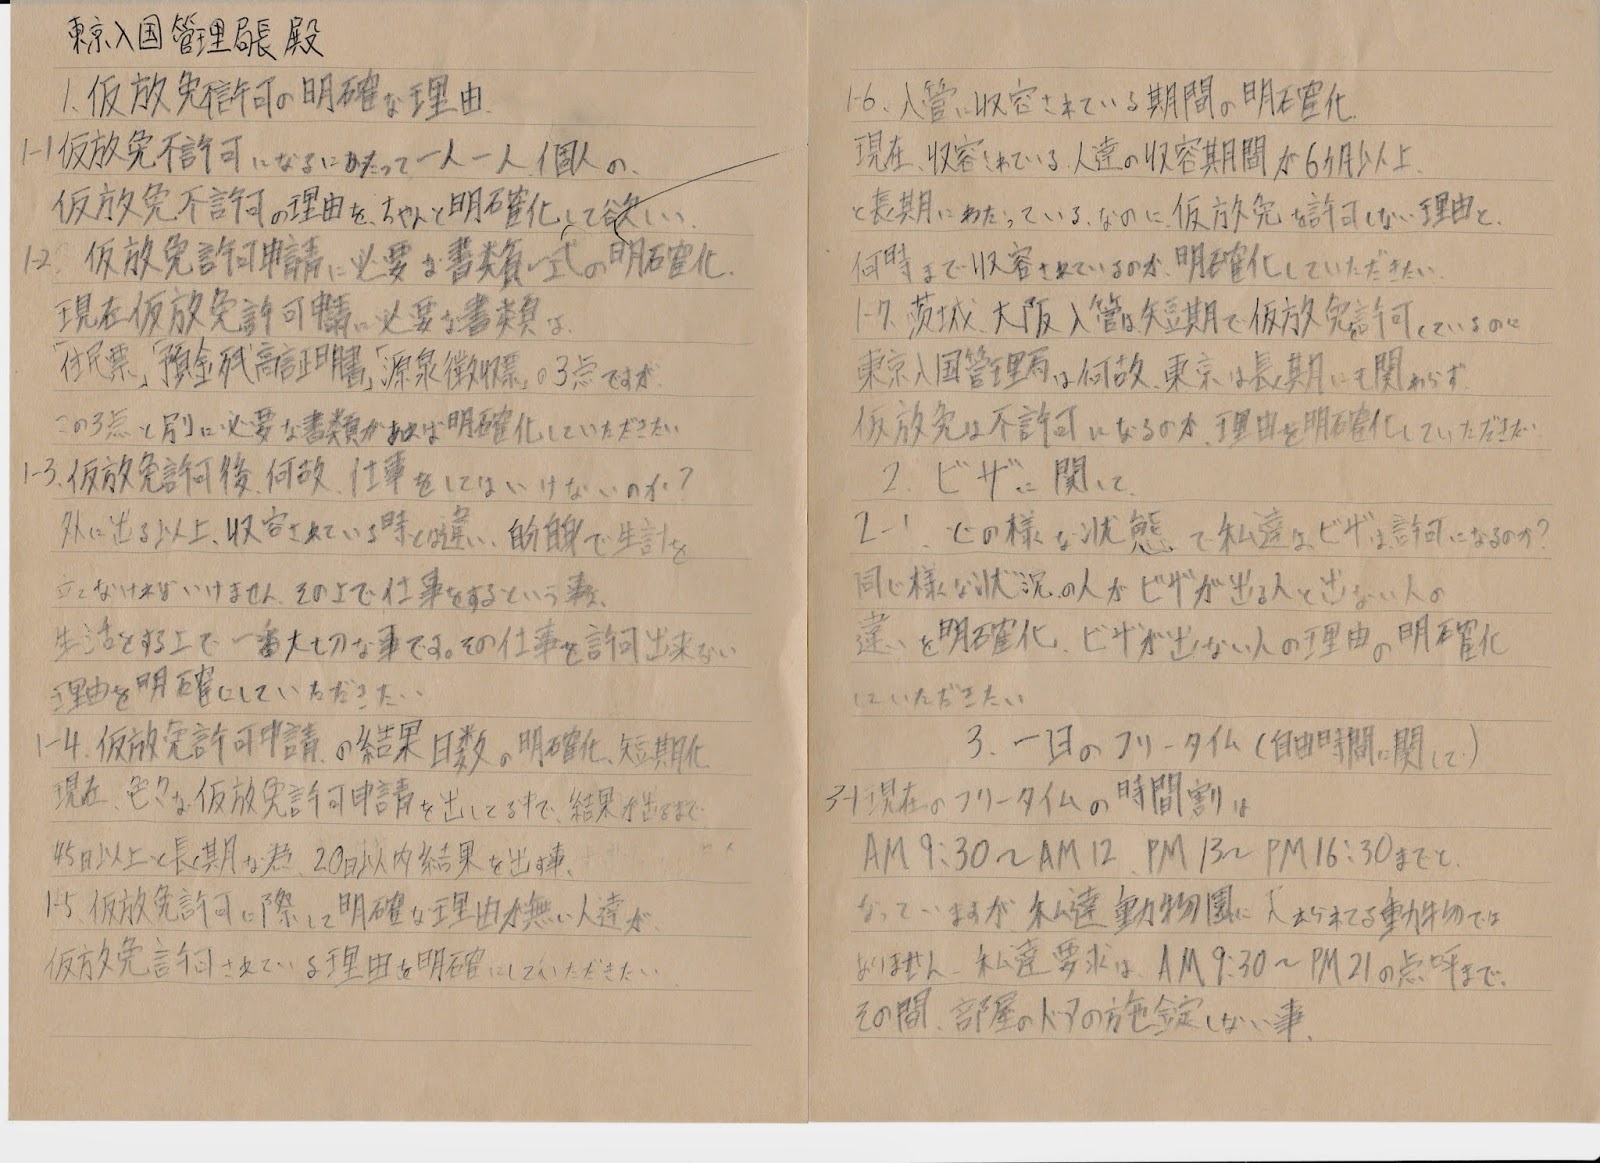 東京入国管理局長殿
1. 仮放免許可の明確な理由.
1-1 仮放免不許可になるにあたって一人一人、個人の、
仮放免不許可の理由を、ちゃんと明確化して欲しい.
1-2. 仮放免許可申請に必要な書類一式の明確化.
現在仮放免許可申請に必要な書類は、
「住民票」「預金残高証明書」「源泉徴収票」の3点ですが.
この3点と別に必要な書類があれば明確化していただきたい
1-3. 仮放免許可後、何故、仕事をしてはいけないのか?
外に出る以上、収容されている時とは違い、自分自身で生計を
立てなければいけません. その上で仕事をするという事は、
生活をする上で一番大切な事です。その仕事を許可出来ない
理由を明確にしていただきたい
1-4. 仮放免許可申請の結果日数の明確化、短期化
現在、色々な仮放免許可申請を出してる中で、結果が出るまで
45日以上と長期な為、20日以内結果を出す事、
1-5. 仮放免許可に際して明確な理由が無い人達が、
仮放免許可されている理由を明確にしていただきたい
1-6. 入管に収容されている期間の明確化.
現在、収容されている、人達の収容期間が6ヶ月以上
と長期にわたっている、なのに、仮放免を許可しない理由と、
何時まで収容されているのか、明確化していただきたい.
1-7. 茨城、大阪入管は短期で仮放免許可しているのに
東京入国管理局は何故、東京は長期にも関わらず
仮放免は不許可になるのか、理由を明確化していただきたい
2. ビザに関して.
2-1. どの様な状態で私達はビザは許可になるのか?
同じ様な状況の人がビザが出る人と出ない人の
違いを明確化、ビザが出ない人の理由の明確化
していただきたい
3. 一日のフリータイム(自由時間に関して)
3-1 現在のフリータイムの時間割は
AM 9:30～AM12 PM13～PM16:30までと、
なっていますが、私達動物園に入れられてる動物では
ありません、私達要求は、AM9:30～PM21の点呼まで、
その間、部屋のドアの施錠しない事.